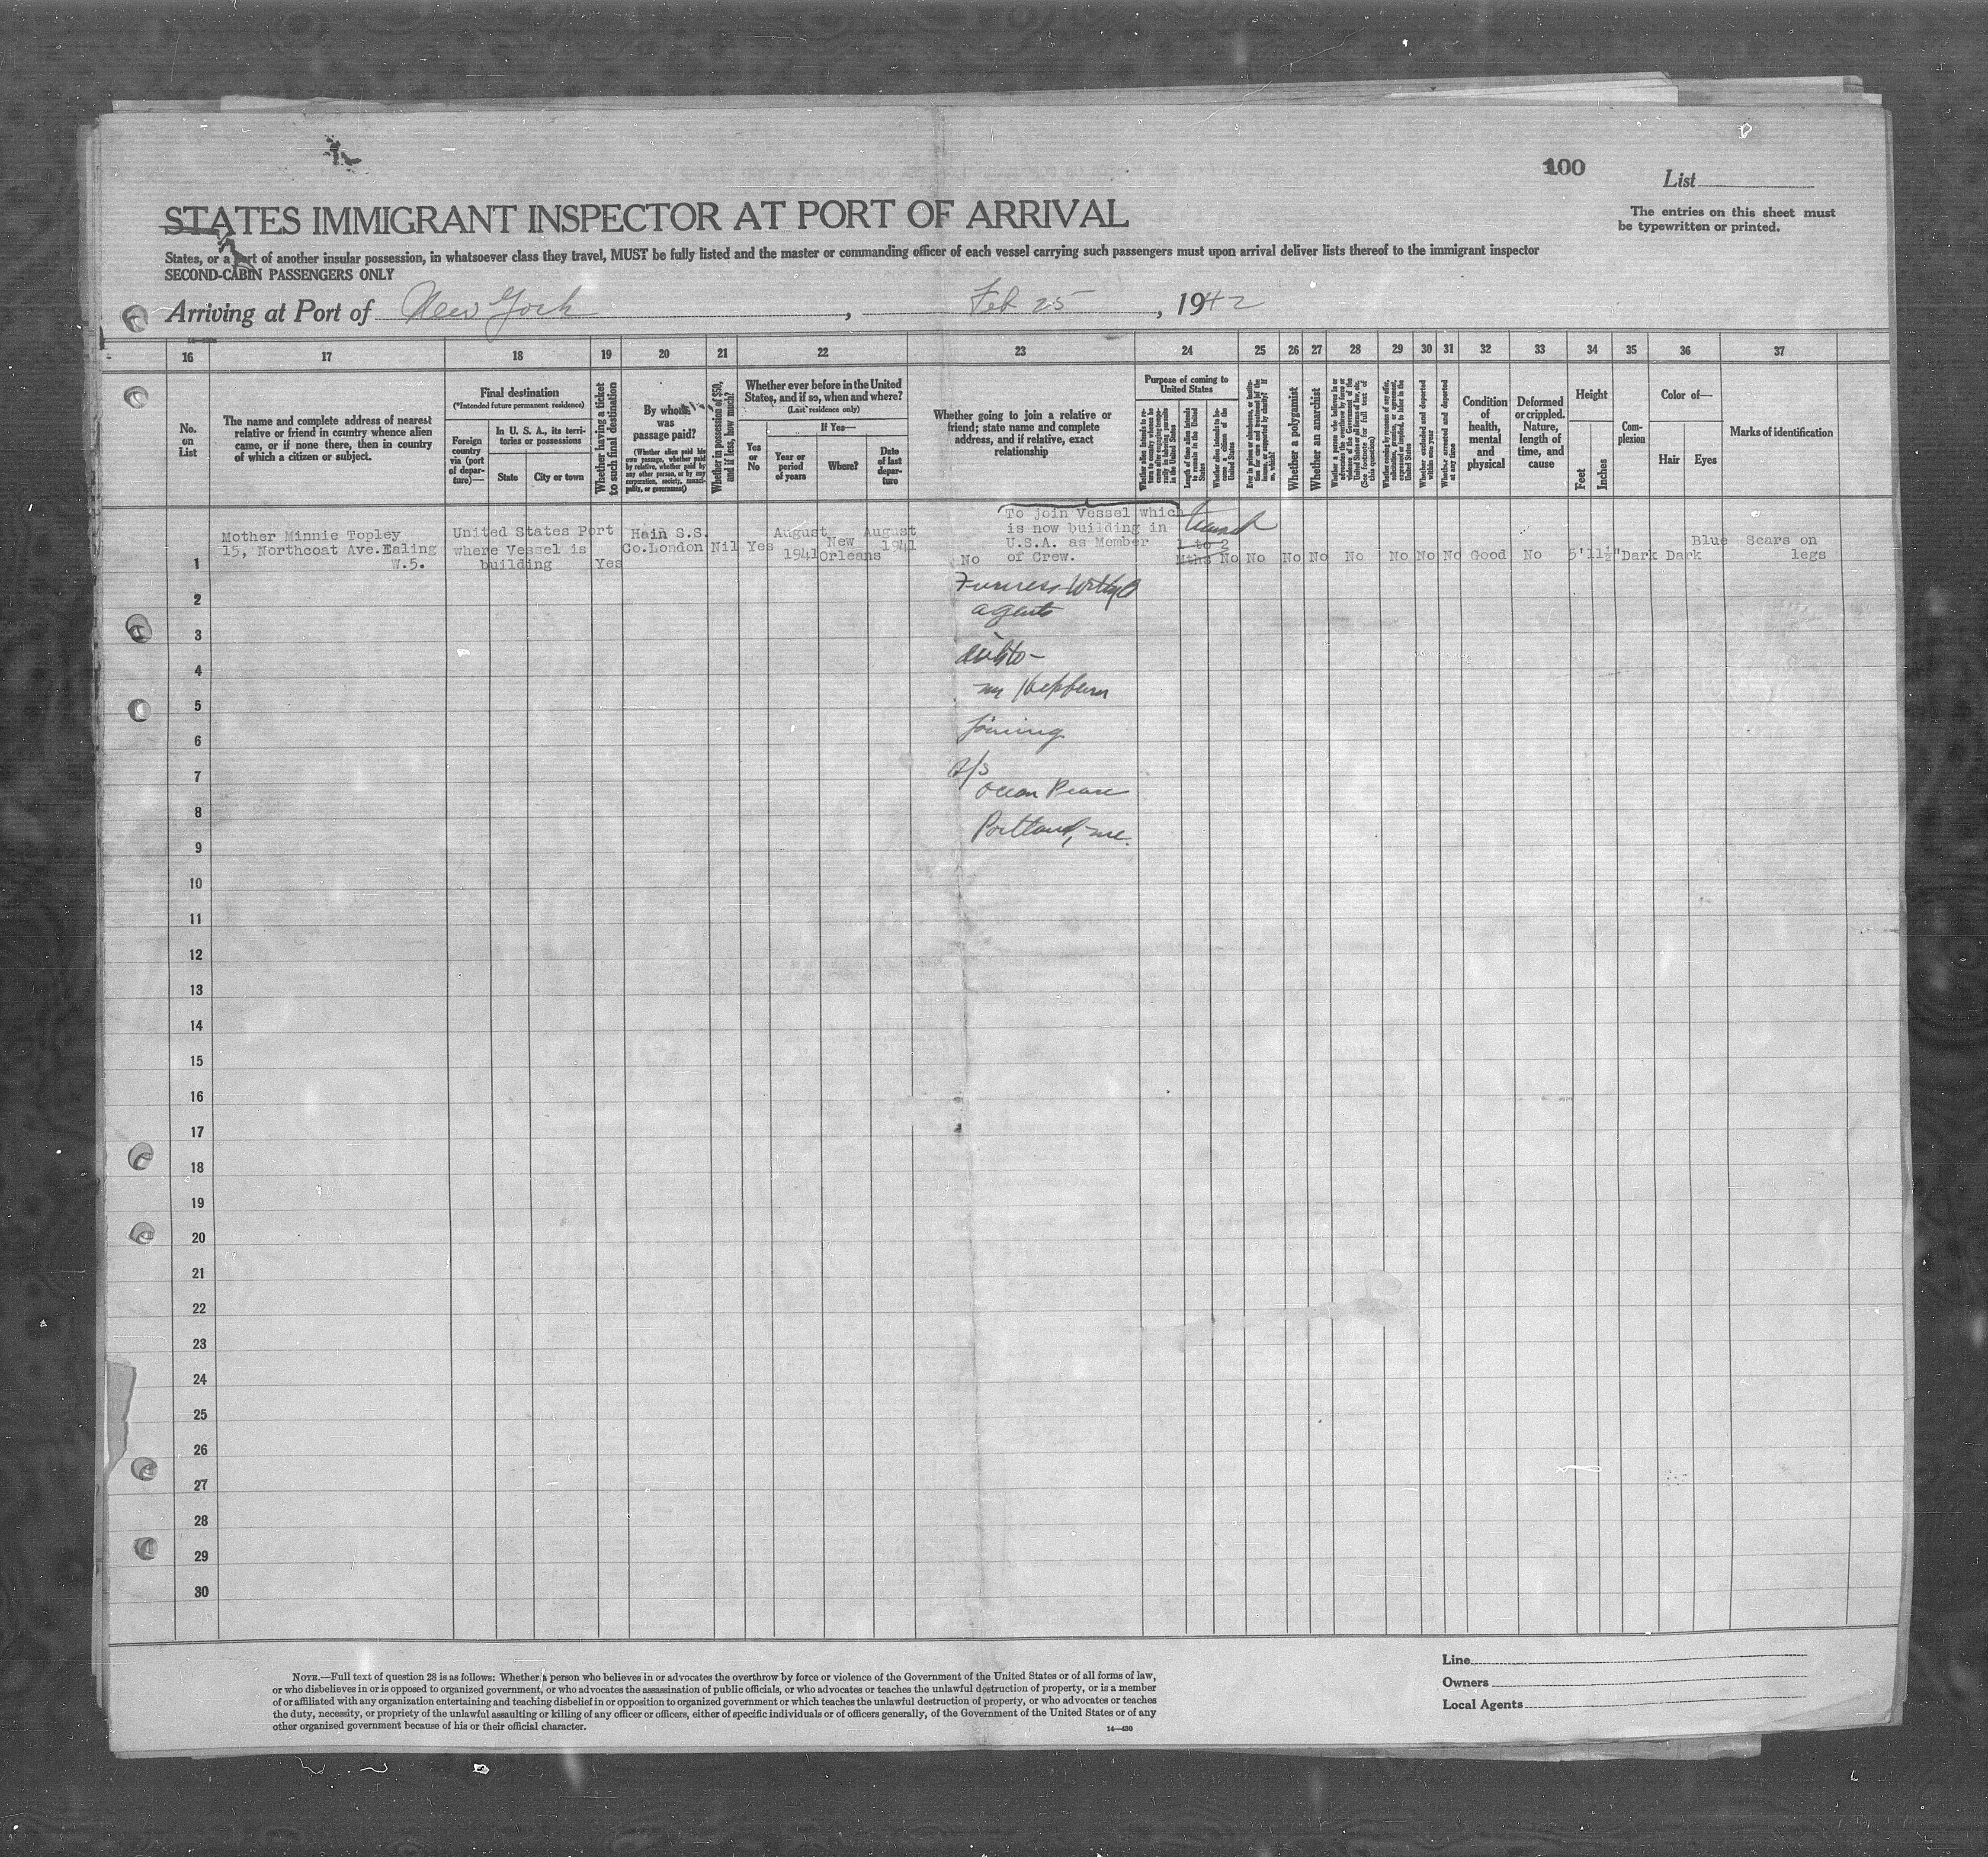 100
List
The entries on this sheet must
be typewritten or printed.
STATES IMMIGRANT INSPECTOR AT PORT OF ARRIVAL
States, or a part of another insular possession, in whatsoever class they travel, MUST be fully listed and the master or commanding officer of each vessel carrying such passengers must upon arrival deliver lists thereof to the immigrant inspector
SECOND-CABIN PASSENGERS ONLY
Arriving at Port of New York, Feb 25, 1942
16 17 18 19 20 21 22 23 24 25 26 27 28 29 30 31 32 33 34 35 36 37
No.
on
List
The name and complete address of nearest
relative or friend in country whence alien
came, or if none there, then in country
of which a citizen or subject.
Final destination
(*Intended future permanent residence)
Foreign
country
via (port
of depar-
ture)—
In U. S. A., its terri-
tories or possessions
State
City or town
Whether having a ticket
to such final destination
By whom
was
passage paid?
(Whether alien paid his
own passage, whether paid
by relative, whether paid by
any other person, or by any
corporation, society, munici-
pality, or government)
Whether in possession of $50,
and if less, how much?
Whether ever before in the United
States, and if so, when and where?
(Last residence only)
Yes
or
No
If Yes—
Year or
period
of years
Where?
Date
of last
depar-
ture
Whether going to join a relative or
friend; state name and complete
address, and if relative, exact
relationship
Purpose of coming to
United States
Length of time alien intends
to remain in the United
States
Whether alien intends to be-
come a citizen of the
United States
Whether a polygamist
Whether an anarchist
Whether excluded and deported
within one year
Whether arrested and deported
at any time
Condition
of
health,
mental
and
physical
Deformed
or crippled.
Nature,
length of
time, and
cause
Height
Feet
Inches
Com-
plexion
Color of—
Hair
Eyes
Marks of identification
1
Mother Minnie Topley
15, Northcoat Ave.Ealing
W.5.
United States Port
where Vessel is
building
Yes
Hain S.S.
Co.London
Nil
Yes
August
1941
New
Orleans
August
1941
No
To join Vessel which
is now building in
U.S.A. as Member
of Crew.
1 to 2
Mths No No No No No No No No Good No 5'11½" Dark Dark Blue Scars on
legs
Furness Withy
agents
ditto —
mr Hepburn
joining
S/S
Ocean Peace
Portland, me.
2
3
4
5
6
7
8
9
10
11
12
13
14
15
16
17
18
19
20
21
22
23
24
25
26
27
28
29
30
NOTE.—Full text of question 28 is as follows: Whether a person who believes in or advocates the overthrow by force or violence of the Government of the United States or of all forms of law,
or who disbelieves in or is opposed to organized government, or who advocates the assassination of public officials, or who advocates or teaches the unlawful destruction of property, or is a member
of or affiliated with any organization entertaining and teaching disbelief in or opposition to organized government or which teaches the unlawful destruction of property, or who advocates or teaches
the duty, necessity, or propriety of the unlawful assaulting or killing of any officer or officers, either of specific individuals or of officers generally, of the Government of the United States or of any
other organized government because of his or their official character.
14—430
Line
Owners
Local Agents